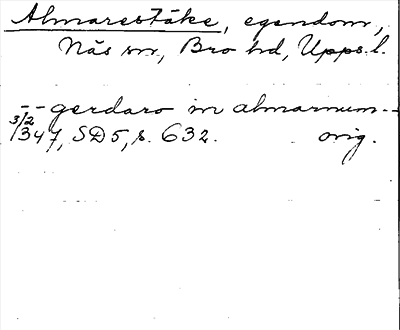 Almarestäke, egendom,
Näs sn, Bro hd, Upps. l.
-- gerdaro in almarnum --
3/2 1347, SD5, s. 632. orig.